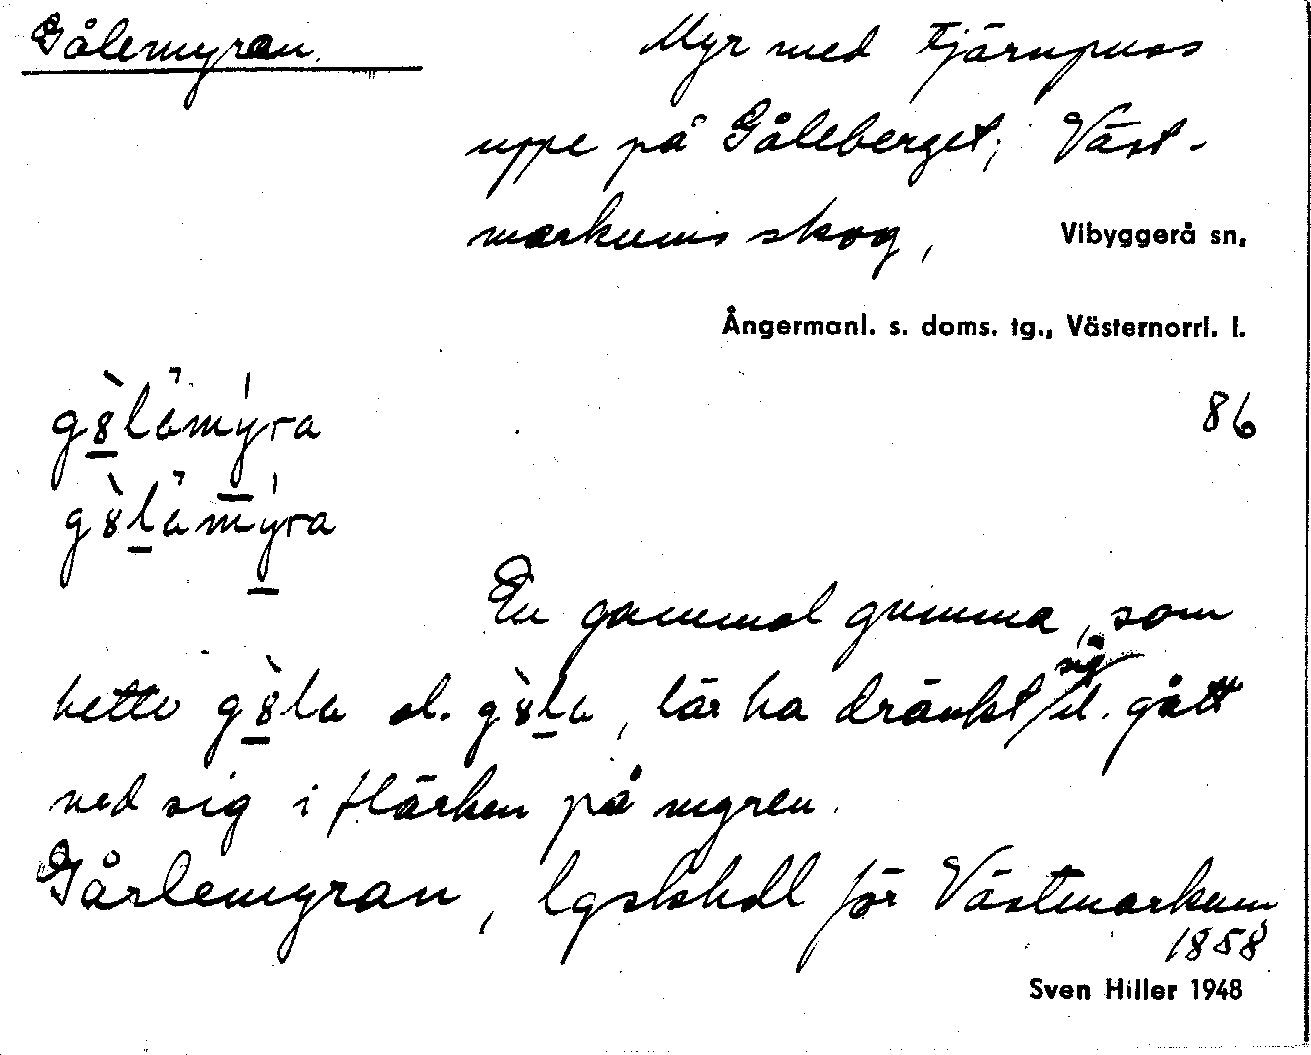 Gålemyran.
Myr med tjärnpuss
uppe på Gåleberget; Väst-
markums skog,
Vibyggerå sn,
Ångermanl. s. doms. tg., Västernorrl. l.
86
En gammal gumma, som
hette el. lär ha dränkt sig el. gått
ned sig i flärken på myren.
Gårlemyran, lgskhdl för Västmarkum
1858
Sven Hiller 1948